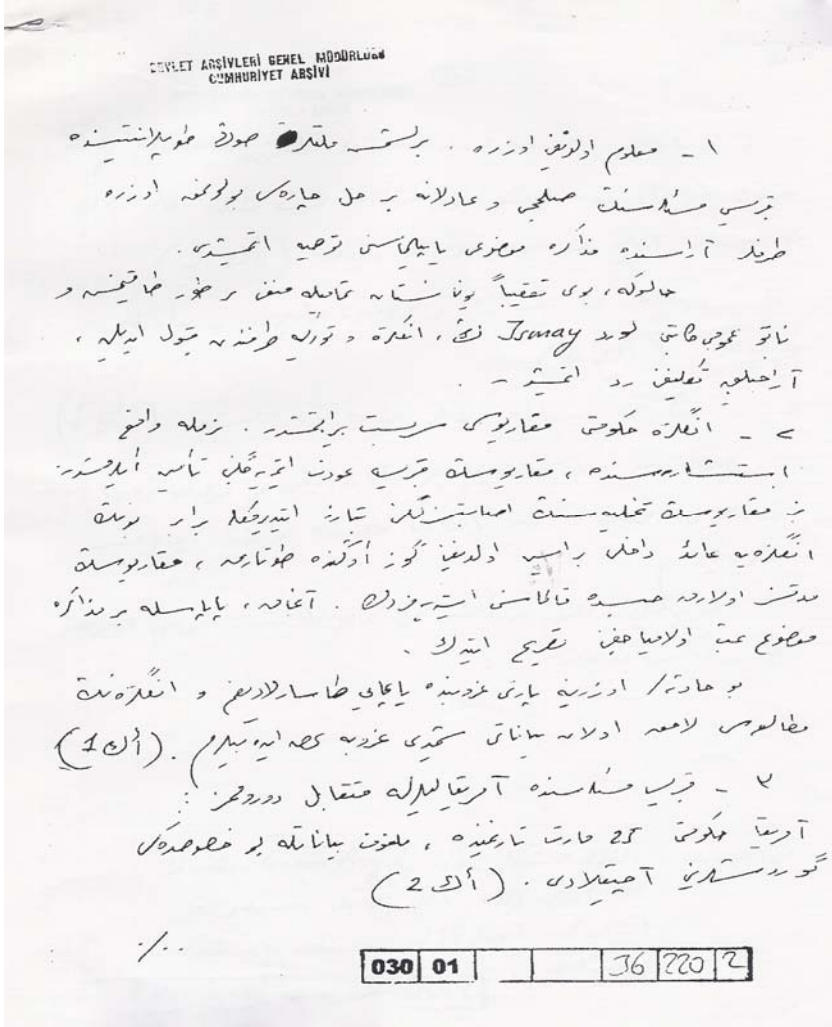 DEVLET ARŞİVLERİ GENEL MÜDÜRLÜĞÜ
CUMHURİYET ARŞİVİ
١ - معلوم اولديغى اوزره . برلشمش ملتلر صوڭ طوپلانتيسنده
قبريس مسئله سنڭ صلحجى و عادلانه بر حل چاره سى بولونمق اوزره
طرفلر آراسنده مذاكره موضوعى ياپيلماسنى توصيه ايتمشدى .
حالبوكه ، بونى تعقيباً يونانستان تماميله منفى بر طور طاقينمش و
ناتو عمومى كاتبى لورد Ismay نڭ ، انگلتره و توركيه طرفندن قبول ايديلن ،
آراجيلق تكليفنى رد ايتمشدر .
٢ - انگلتره حكومتى مقاريوسى سربست براقمشدر . بزمله واقع
استشاره سنده ، مقاريوسڭ قبريسه عودت ايتميه جگنى تأمين ايله مشدر .
بز مقاريوسڭ تخليه سنڭ اصابتسزلگنى تبارز ايتديرمكله برابر بونڭ
انگلتره يه عائد داخلى بر ايش اولديغنى گوز اوڭنده طوتارق ، مقاريوسڭ
مدتسز اولارق حبسده قالماسنى ايسته يه مزدك . آنجاق ، پاپاسله بر مذاكره
موضوع بحث اولامياجغنى تصريح ايتدك .
بو حادثه اوزرينه پارتى غروبنده ياپمايى طاسارلاديغم و انگلتره نڭ
مطالعه سى لاحق اولان بياناتى شيمدى غروبه عرض ايده بيليرم . (أك 1)
٣ - قبريس مسئله سنده آمريقاليلرله متقابل دورومز :
آمريقا حكومتى 25 مارت تاريخنده ، ملفوف بياناتله بو خصوصده كى
گوروشلرينى آچيقلادى . (أك 2)
./..
030 01 36 220 2